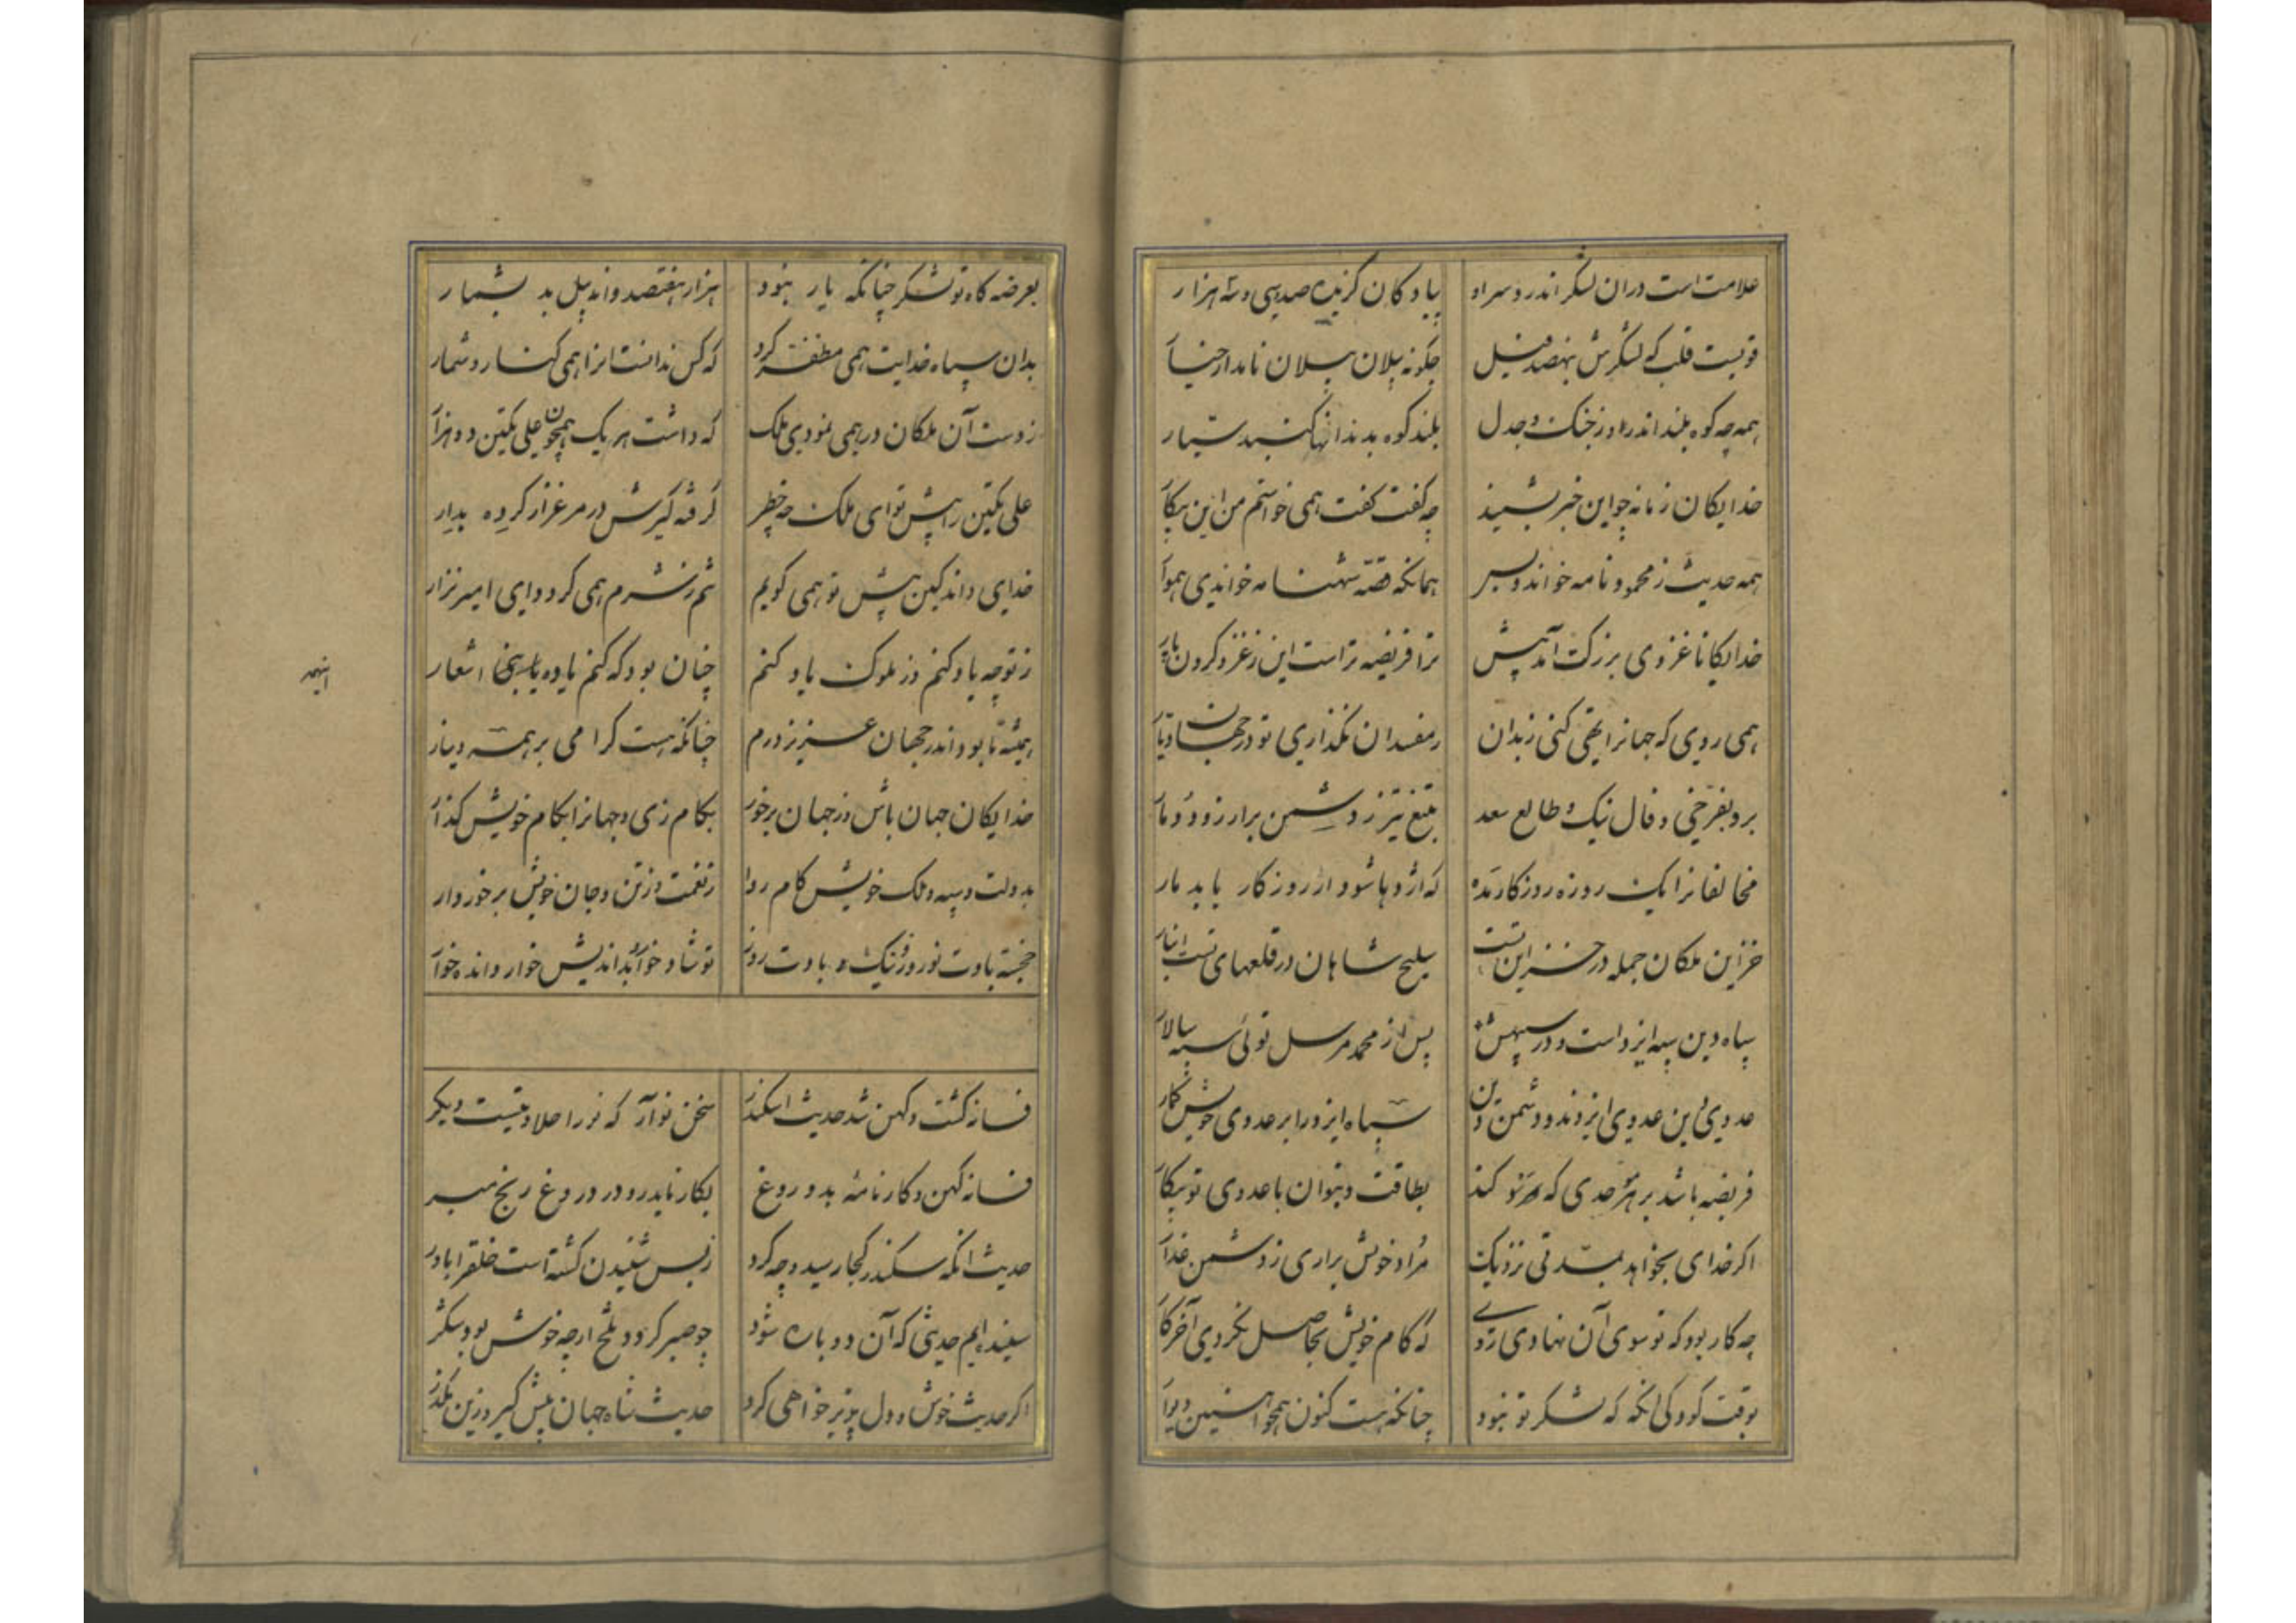 علامت است دران لشکر اندر و سر او پیادگان گزیده صد و سی و سه هزار
قویست قلب که لشکرش بنهصد فیل چگونه پیلان پیلان نامدار خیار
همه چه کوه بلند اندر روز جنگ و جدل بلند کوه بدندانها کنند شیار
خدایگان زمانه چو این خبر بشنید چه گفت گفت همی خواستم من این پیکار
همه حدیث ز محمودنامه خواند و بس همانکه قصه شهنامه خواندی هموار
خدایگانا غزوی بزرگت آمد پیش ترا فریضه تر است این ز غزو کردن پار
همی روی که جهانرا تهی کنی ز بدان ز مفسدان نگذاری تو در جهان دیار
برو بفرخی و فال نیک و طالع سعد بتیغ تیز ز دشمن برار زود دمار
مخالفانرا یک روزه روزگار مده که اژدها شود ار روزگار یابد مار
خزاین ملکان جمله در خزاین تست سلیح شاهان در قلعهای تست انبار
سپاه دین سپه ایزد است و در سپهش پس از محمد مرسل توئی سپه سالار
عدوی دین عدوی ایزدند و دشمن دین سپاه ایزد را بر عدوی خویش گمار
فریضه باشد بر هر موحدی که کند بطاقت و بتوان با عدوی تو پیکار
اگر خدای بخواهد بمدتی نزدیک مراد خویش براری ز دشمن غدار
چه کار بود که تو سوی آن نهادی روی که کام خویش بحاصل نکردی آخر کار
بوقت کودکی آنگه که لشکر تو نبود چنانکه هست کنون همچو آهنین دیوار
بعرضه گاه تو لشکر چنانکه یار نبود هزار و هفتصد و اند پیل بد بشمار
بدان سپاه خدایت همی مظفر کرد که کس ندانست انرا همی کنار و شمار
ز دست آن ملکان در همی نمودی ملک که داشت هر یک همچون علی تکین دو هزار
علی تکین را پیش تو ای ملک چه خطر گرفته گیرش در مرغزار کرده بدار
خدای داند کین پیش تو همی گویم تنم ز شرم همی گردد ای امیر نزار
ز تو چه یاد کنم وز ملوک یاد کنم چنان بود که کنم یاوه با سخن اشعار
همیشه تا بود اندر جهان عزیز درم چنانکه هست گرامی بر همه دینار
خدایگان جهان باش وز جهان برخور بکام زی و جهانرا بکام خویش گذار
بدولت و سپه و ملک خویش کام روا ز نعمت و ز تن و جان خویش برخوردار
خجسته بادت نوروز و نیک بادت روز تو شاد خوار و بداندیش خوار و انده خوار
فسانه گشت و کهن شد حدیث اسکندر سخن نو آر که نو را حلاوتیست دیگر
فسانه کهن و کارنامه بدروغ بکار ناید رو در دروغ رنج مبر
حدیث انکه سکندر کجا رسید و چه کرد ز بس شنیدن گشته است خلق را باور
شنیده‌ایم حدیثی که آن دوباره شود چو صبر گردد تلخ ارچه خوش بود شکر
اگر حدیث خوش و دل پذیر خواهی کرد حدیث شاه جهان پیش گیر و زین مگذر